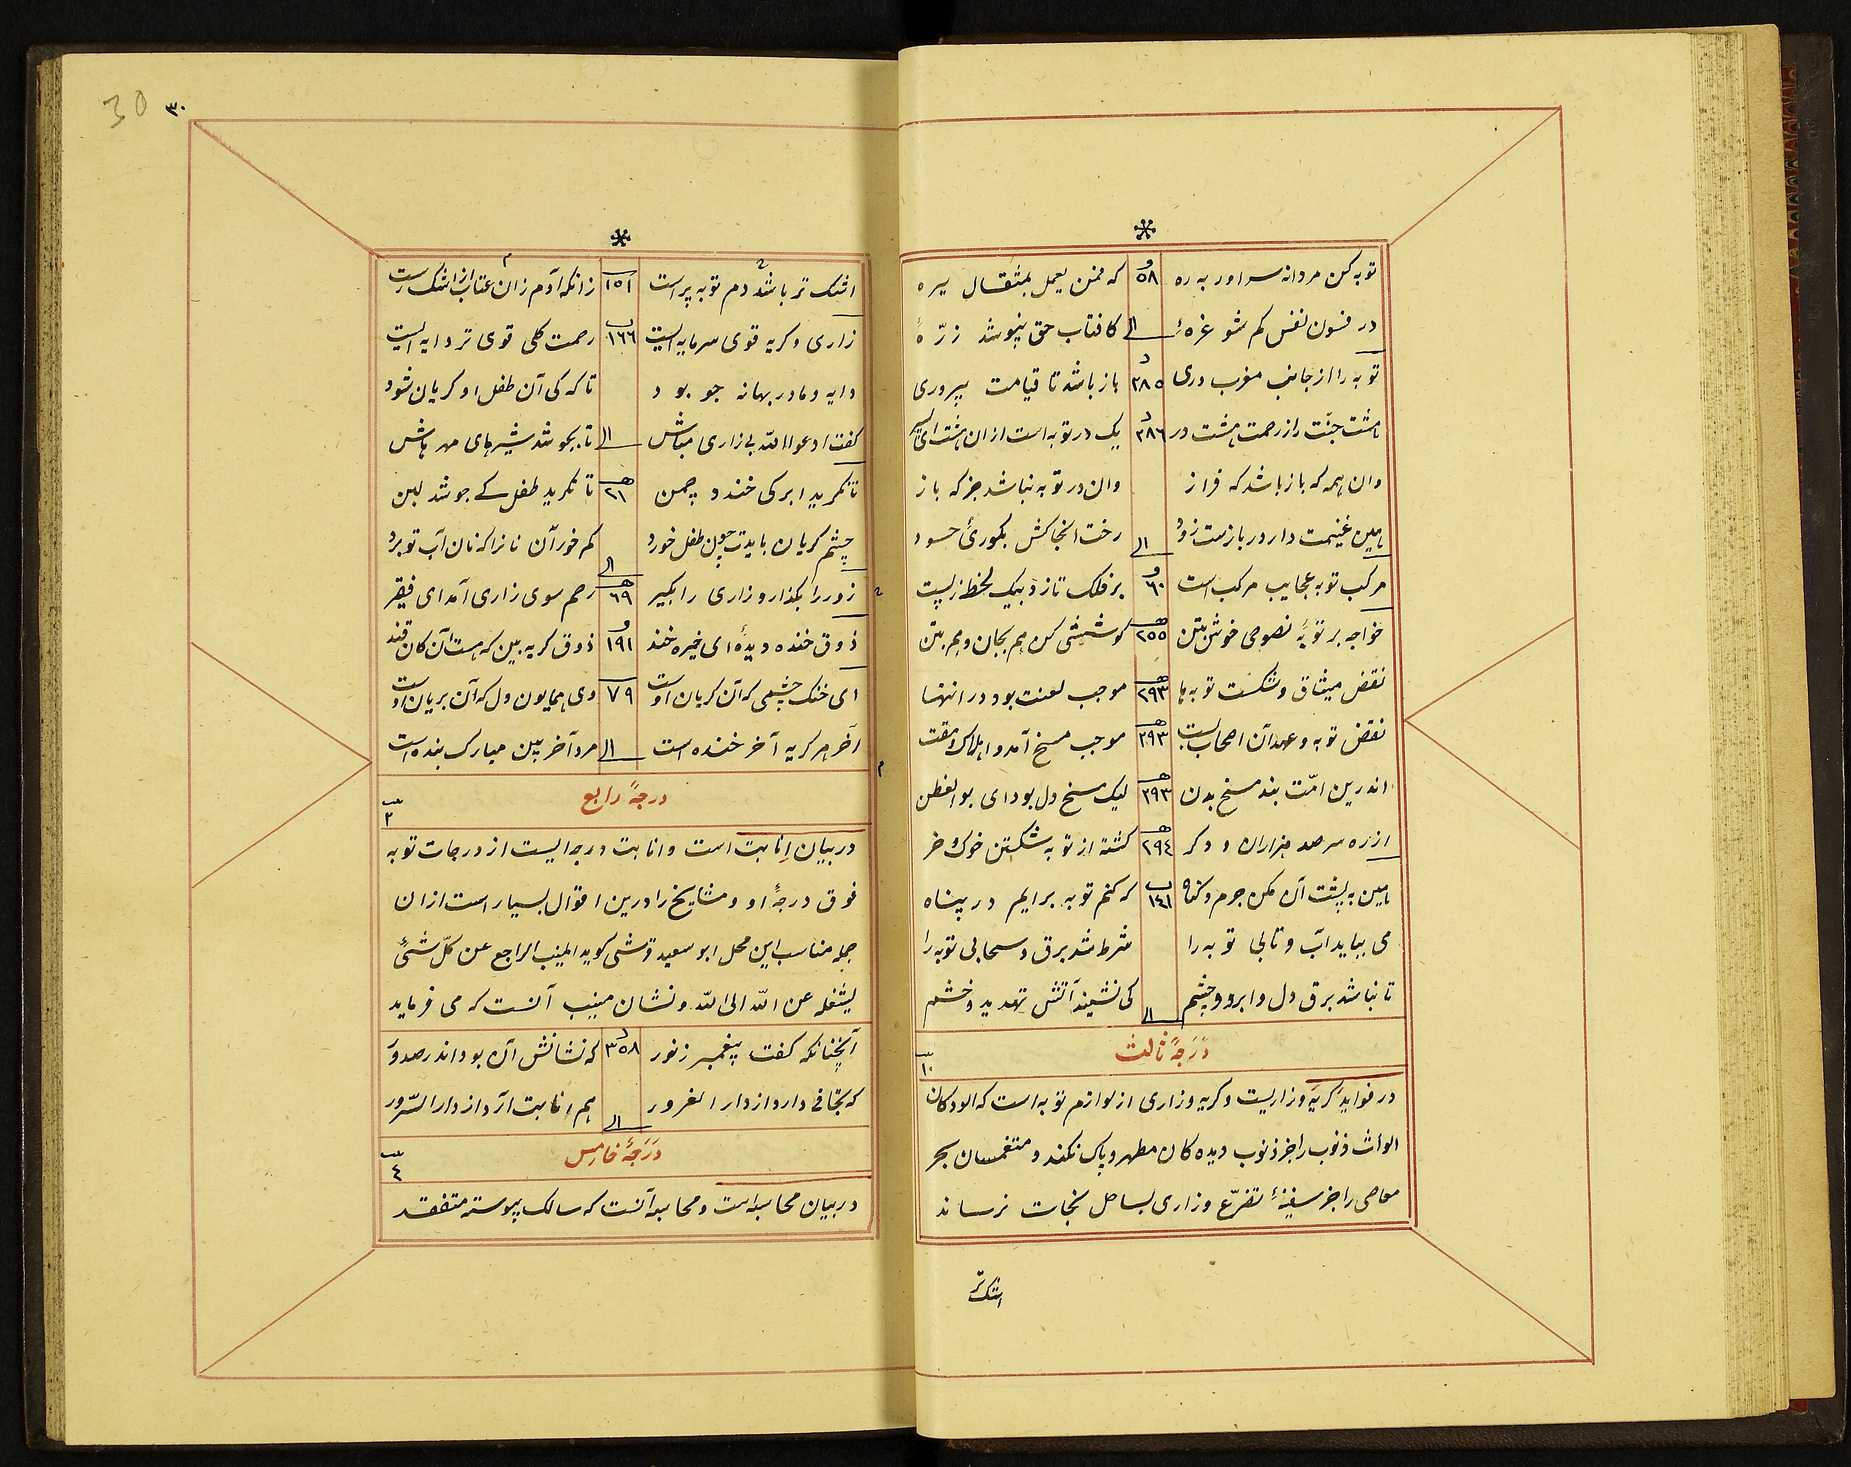 توبه کن مردانه سر اور به ره ٥٨ که فمن یعمل بمثقال یره
در فسون نفس کم شو غرهٔ الی کافتاب حق نپوشد ذرّهٔ
توبه را از جانب مغرب دری ٣٨٥ باز باشد تا قیامت بپروری
هشت جنّت را ز رحمت هشت در ٣٨٦ یک در توبه است ازان هشت ای پسر
وان همه که باز باشد که فراز وان در توبه نباشد جز که باز
هین غنیمت دار در بازست زود الی رخت انجا کش بکوریٔ حسود
مرکب توبه عجایب مرکب است ٦٠ بر فلک تازد بیک لحظه ز پست
خواجه بر توبهٔ نصوحی خوش بتن ٢٥٥ کوششی کن هم بجان و هم بتن
نقض میثاق و شکست توبه ها ٢٩٣ موجب لعنت بود در انتها
نقض توبه و عهد آن اصحاب سبت ٢٩٣ موجب مسخ آمد و اهلاک و مقت
اندرین امّت بند مسخ بدن ٢٩٣ لیک مسخ دل بود ای بو الفطن
از ره سر صد هزاران دکر ٢٩٤ کشته از توبه شکستن خوک و خر
هین به پشت آن مکن جرم و کناه ١٤١ که کنم توبه برایم در پناه
می بباید آب و تابی توبه را شرط شد برق و سحابی توبه را
تا نباشد برق دل و ابر دو چشم الی کی نشیند آتش تهدید و خشم
دَرَجَهٔ ثالث ١٠
در فواید کریه و زاریست و کریه و زاری از لوازم توبه است که الودکان
الواث ذنوب را جز ذنوب دیده کان مطهر و پاک نکند و منغمسان بحر
معاصی را جز سفینهٔ تضرّع و زاری بساحل نجات نرساند
اشک تر
٣٠
30
اشک تر باشد دم توبه پرست ١٥١ زانکه آدم زان عتاب از اشک رست
زاری و کریه قوی سرمایه ایست ١٦٦ رحمت کلی قوی تر دایه ایست
دایه و مادر بهانه جو بود تا که کی آن طفل او کریان شود
کفت ادعوا الله بی زاری مباش الی تا بجوشد شیرهای مهرهاش
تا نکرید ابر کی خندد چمن ٢١ تا نکرید طفل کے جوشد لبن
چشم کریان بایدت چون طفل خورد الی کم خور آن نانرا که نان آب تو برد
زور را بکذار و زاری را بکیر ٦٩ رحم سوی زاری آمد ای فقیر
ذوق خنده دیدهٔ ای خیره خند ١٩١ ذوق کریه بین که هست آن کان قند
ای خنک چشمی که آن کریان اوست ٧٩ وی همایون دل که آن بریان اوست
آخر هر کریه آخر خنده است الی مرد آخر بین مبارک بنده است
درجهٔ رابع ٣
در بیان اِنابت است و انابت درجه ایست از درجات توبه
فوق درجهٔ او و مشایخ را درین اقوال بسیار است ازان
جمله مناسب این محل ابو سعید قرشی کوید المنیب الراجع عن کلّ شئٍ
یشغله عن الله الی الله و نشان منیب آنست که می فرماید
آنچنانکه کفت پیغمبر ز نور ٣٥٨ که نشانش آن بود اندر صدور
که تجافی دارد از دار الغرور الی هم انابت آرد از دار السّرور
دَرَجَهٔ خامِس ٤
در بیان محاسبه است و محاسبه آنست که سالک پیوسته متفقد